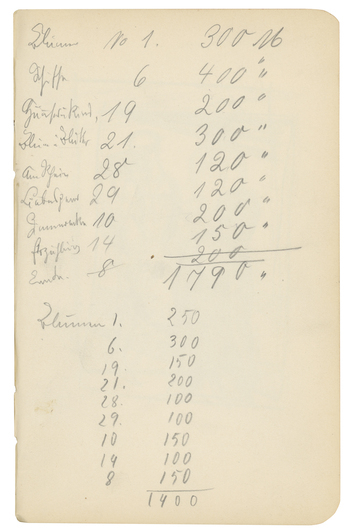 Blumen No 1. 300 M
Schiffe 6 400 "
19 200 "
21. 300 "
28 120 "
Liebespaar 29 120 "
10 200 "
14 150 "
Ernte 8 200
1790 "
Blumen 1. 250
6. 300
19. 150
21. 200
28. 100
29. 100
10 150
14 100
8 150
1400